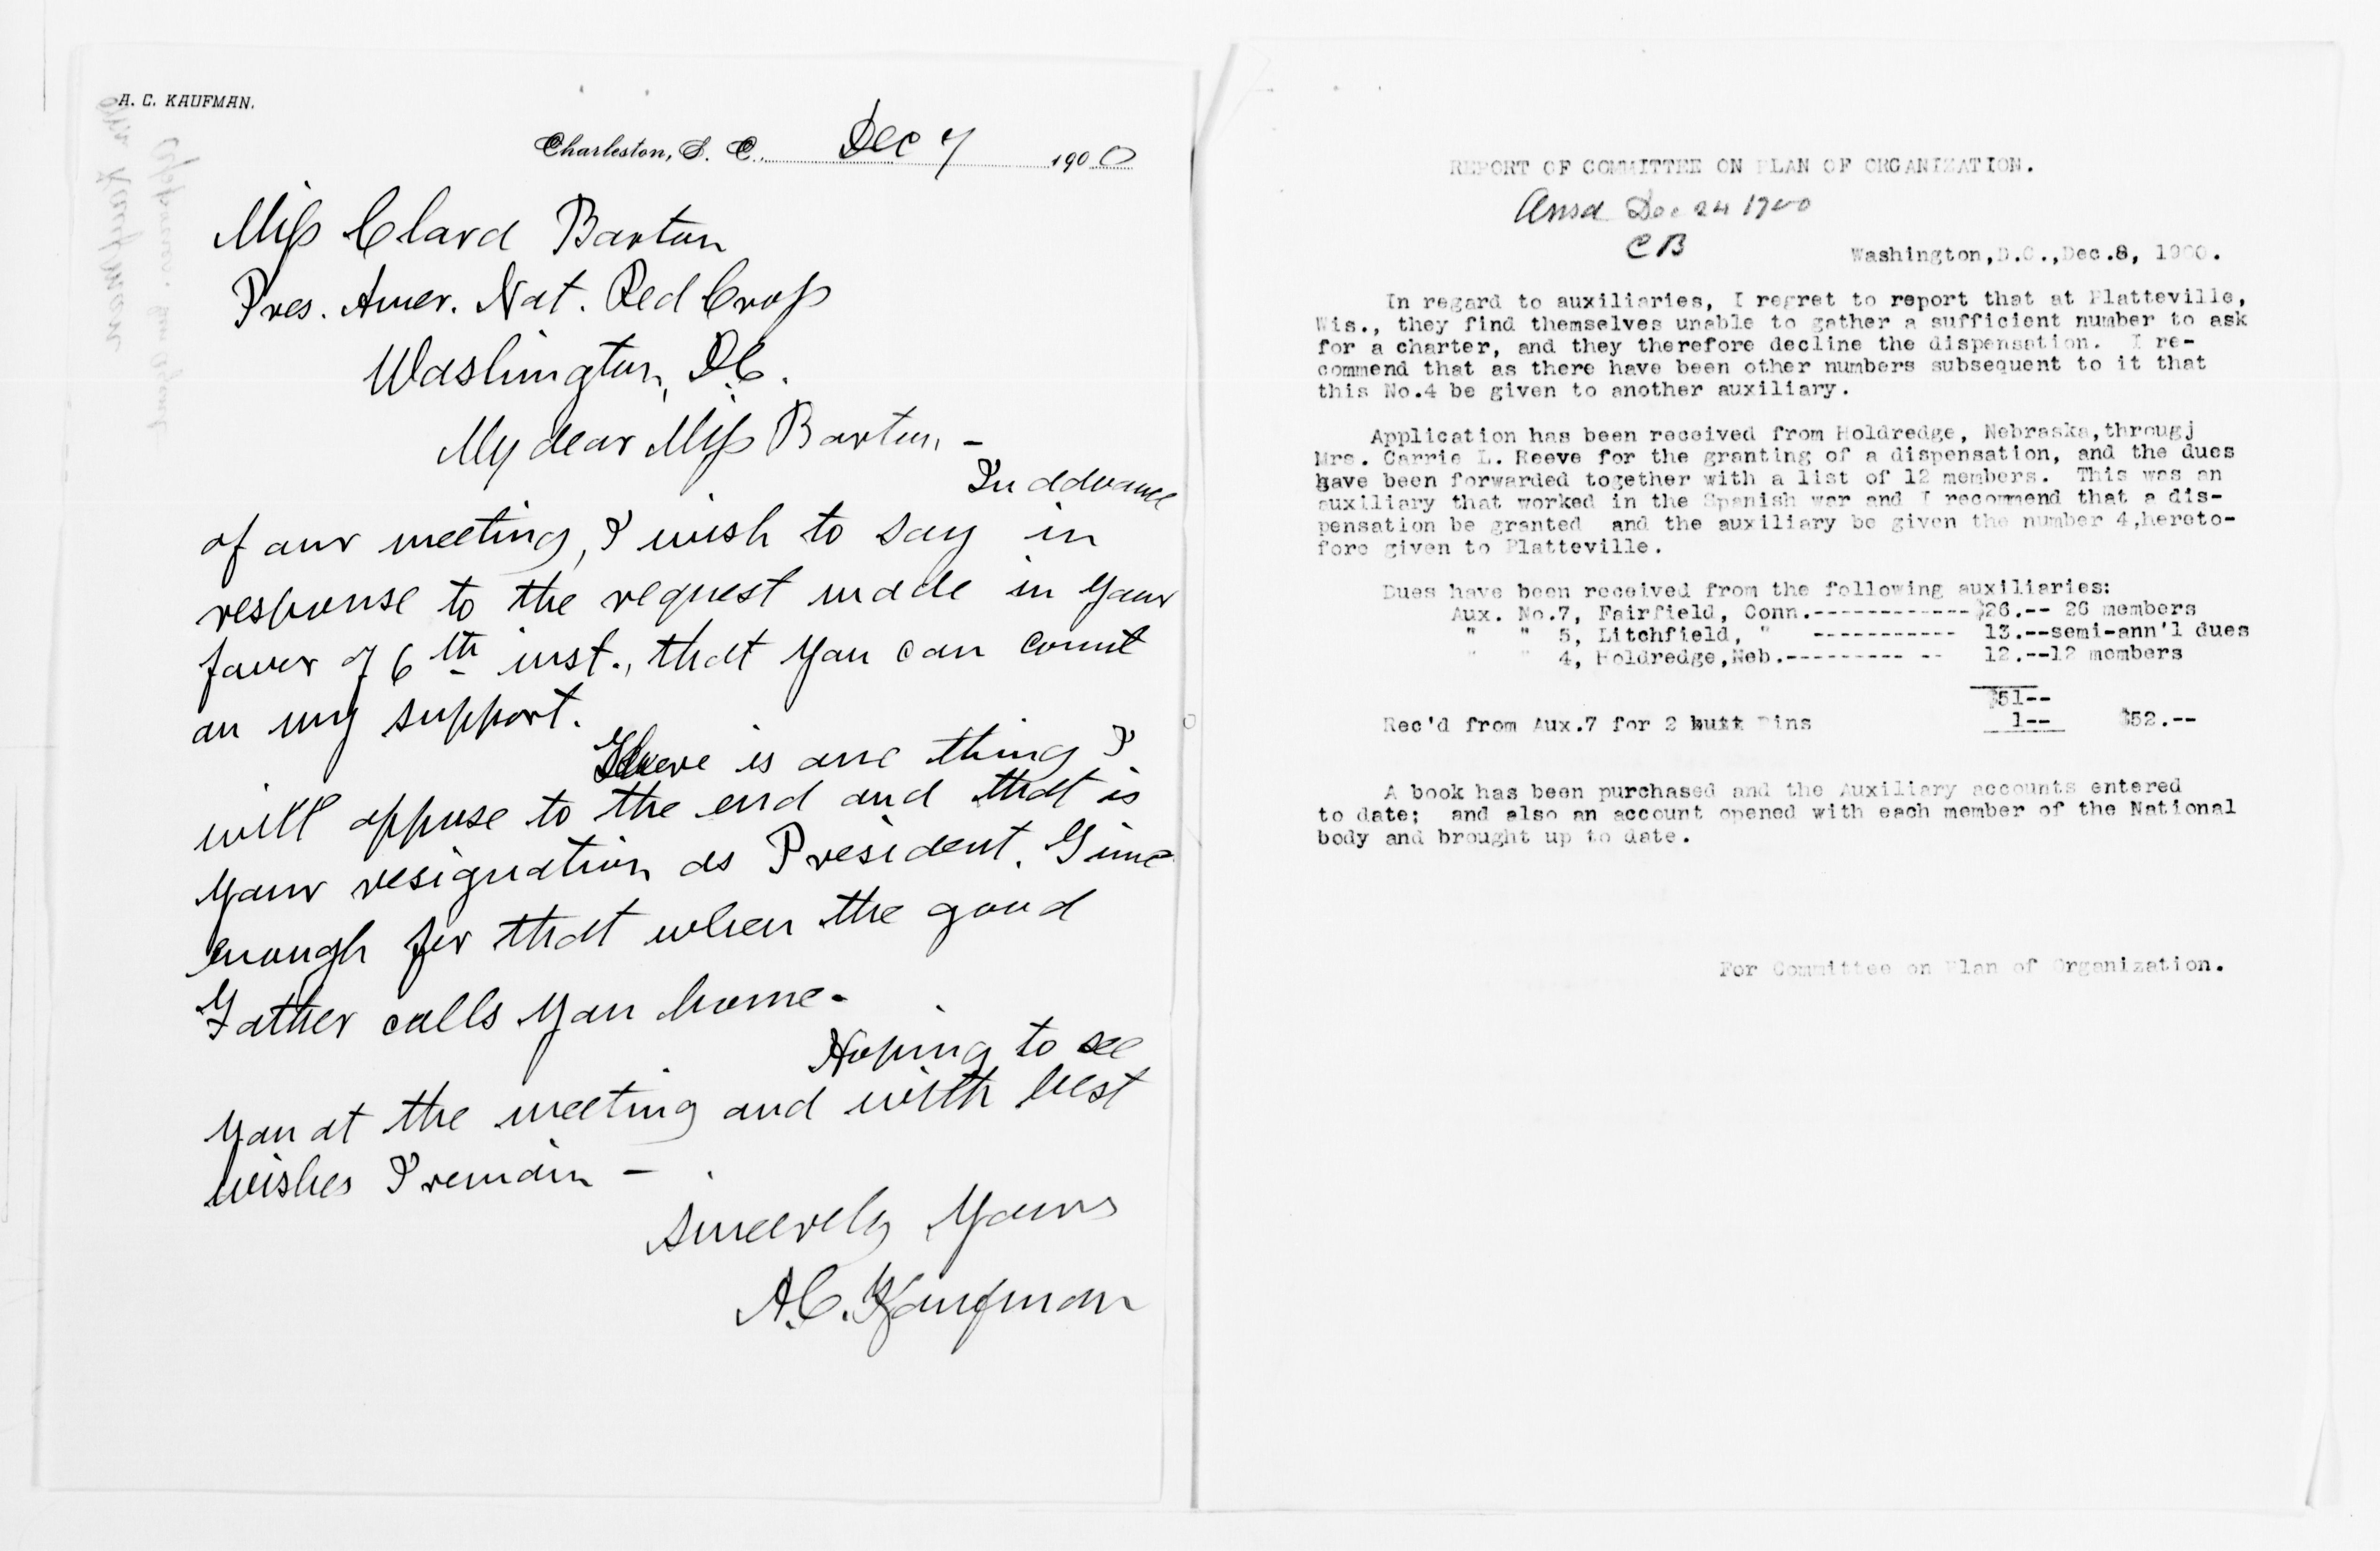 A. C. KAUFMAN.
Charleston, S. C., Dec 7 1900
Miss Clara Barton
Pres. Amer. Nat. Red Cross
Washington, D.C.
My dear Miss Barton, -
In advance
of our meeting, I wish to say in
response to the request made in your
favor of 6th inst., that you can count
on my support.
There is one thing I
will oppose to the end and that is
your resignation as President. Time
enough for that when the good
Father calls you home.
Hoping to see
you at the meeting and with best
wishes I remain -
Sincerely Yours
A.C. Kaufman
Kaufman
REPORT OF COMMITTEE ON PLAN OF ORGANIZATION.
Ansd Dec 24 1900
CB
Washington,D.C.,Dec.8, 1900.
In regard to auxiliaries, I regret to report that at Platteville,
Wis., they find themselves unable to gather a sufficient number to ask
for a charter, and they therefore decline the dispensation. I re-
commend that as there have been other numbers subsequent to it that
this No.4 be given to another auxiliary.
Application has been received from Holdredge, Nebraska,througj
Mrs. Carrie L. Reeve for the granting of a dispensation, and the dues
have been forwarded together with a list of 12 members. This was an
auxiliary that worked in the Spanish war and I recommend that a dis-
pensation be granted and the auxiliary be given the number 4,hereto-
fore given to Platteville.
Dues have been received from the following auxiliaries:
Aux. No.7, Fairfield, Conn.------------$26.-- 26 members
" " 5, Litchfield, " ----------- 13.--semi-ann'l dues
" " 4, Holdredge,Neb.--------- -- 12.--12 members
$51--
Rec'd from Aux.7 for 2 butt Pins 1-- $52.--
A book has been purchased and the Auxiliary accounts entered
to date; and also an account opened with each member of the National
body and brought up to date.
For Committee on Plan of Organization.